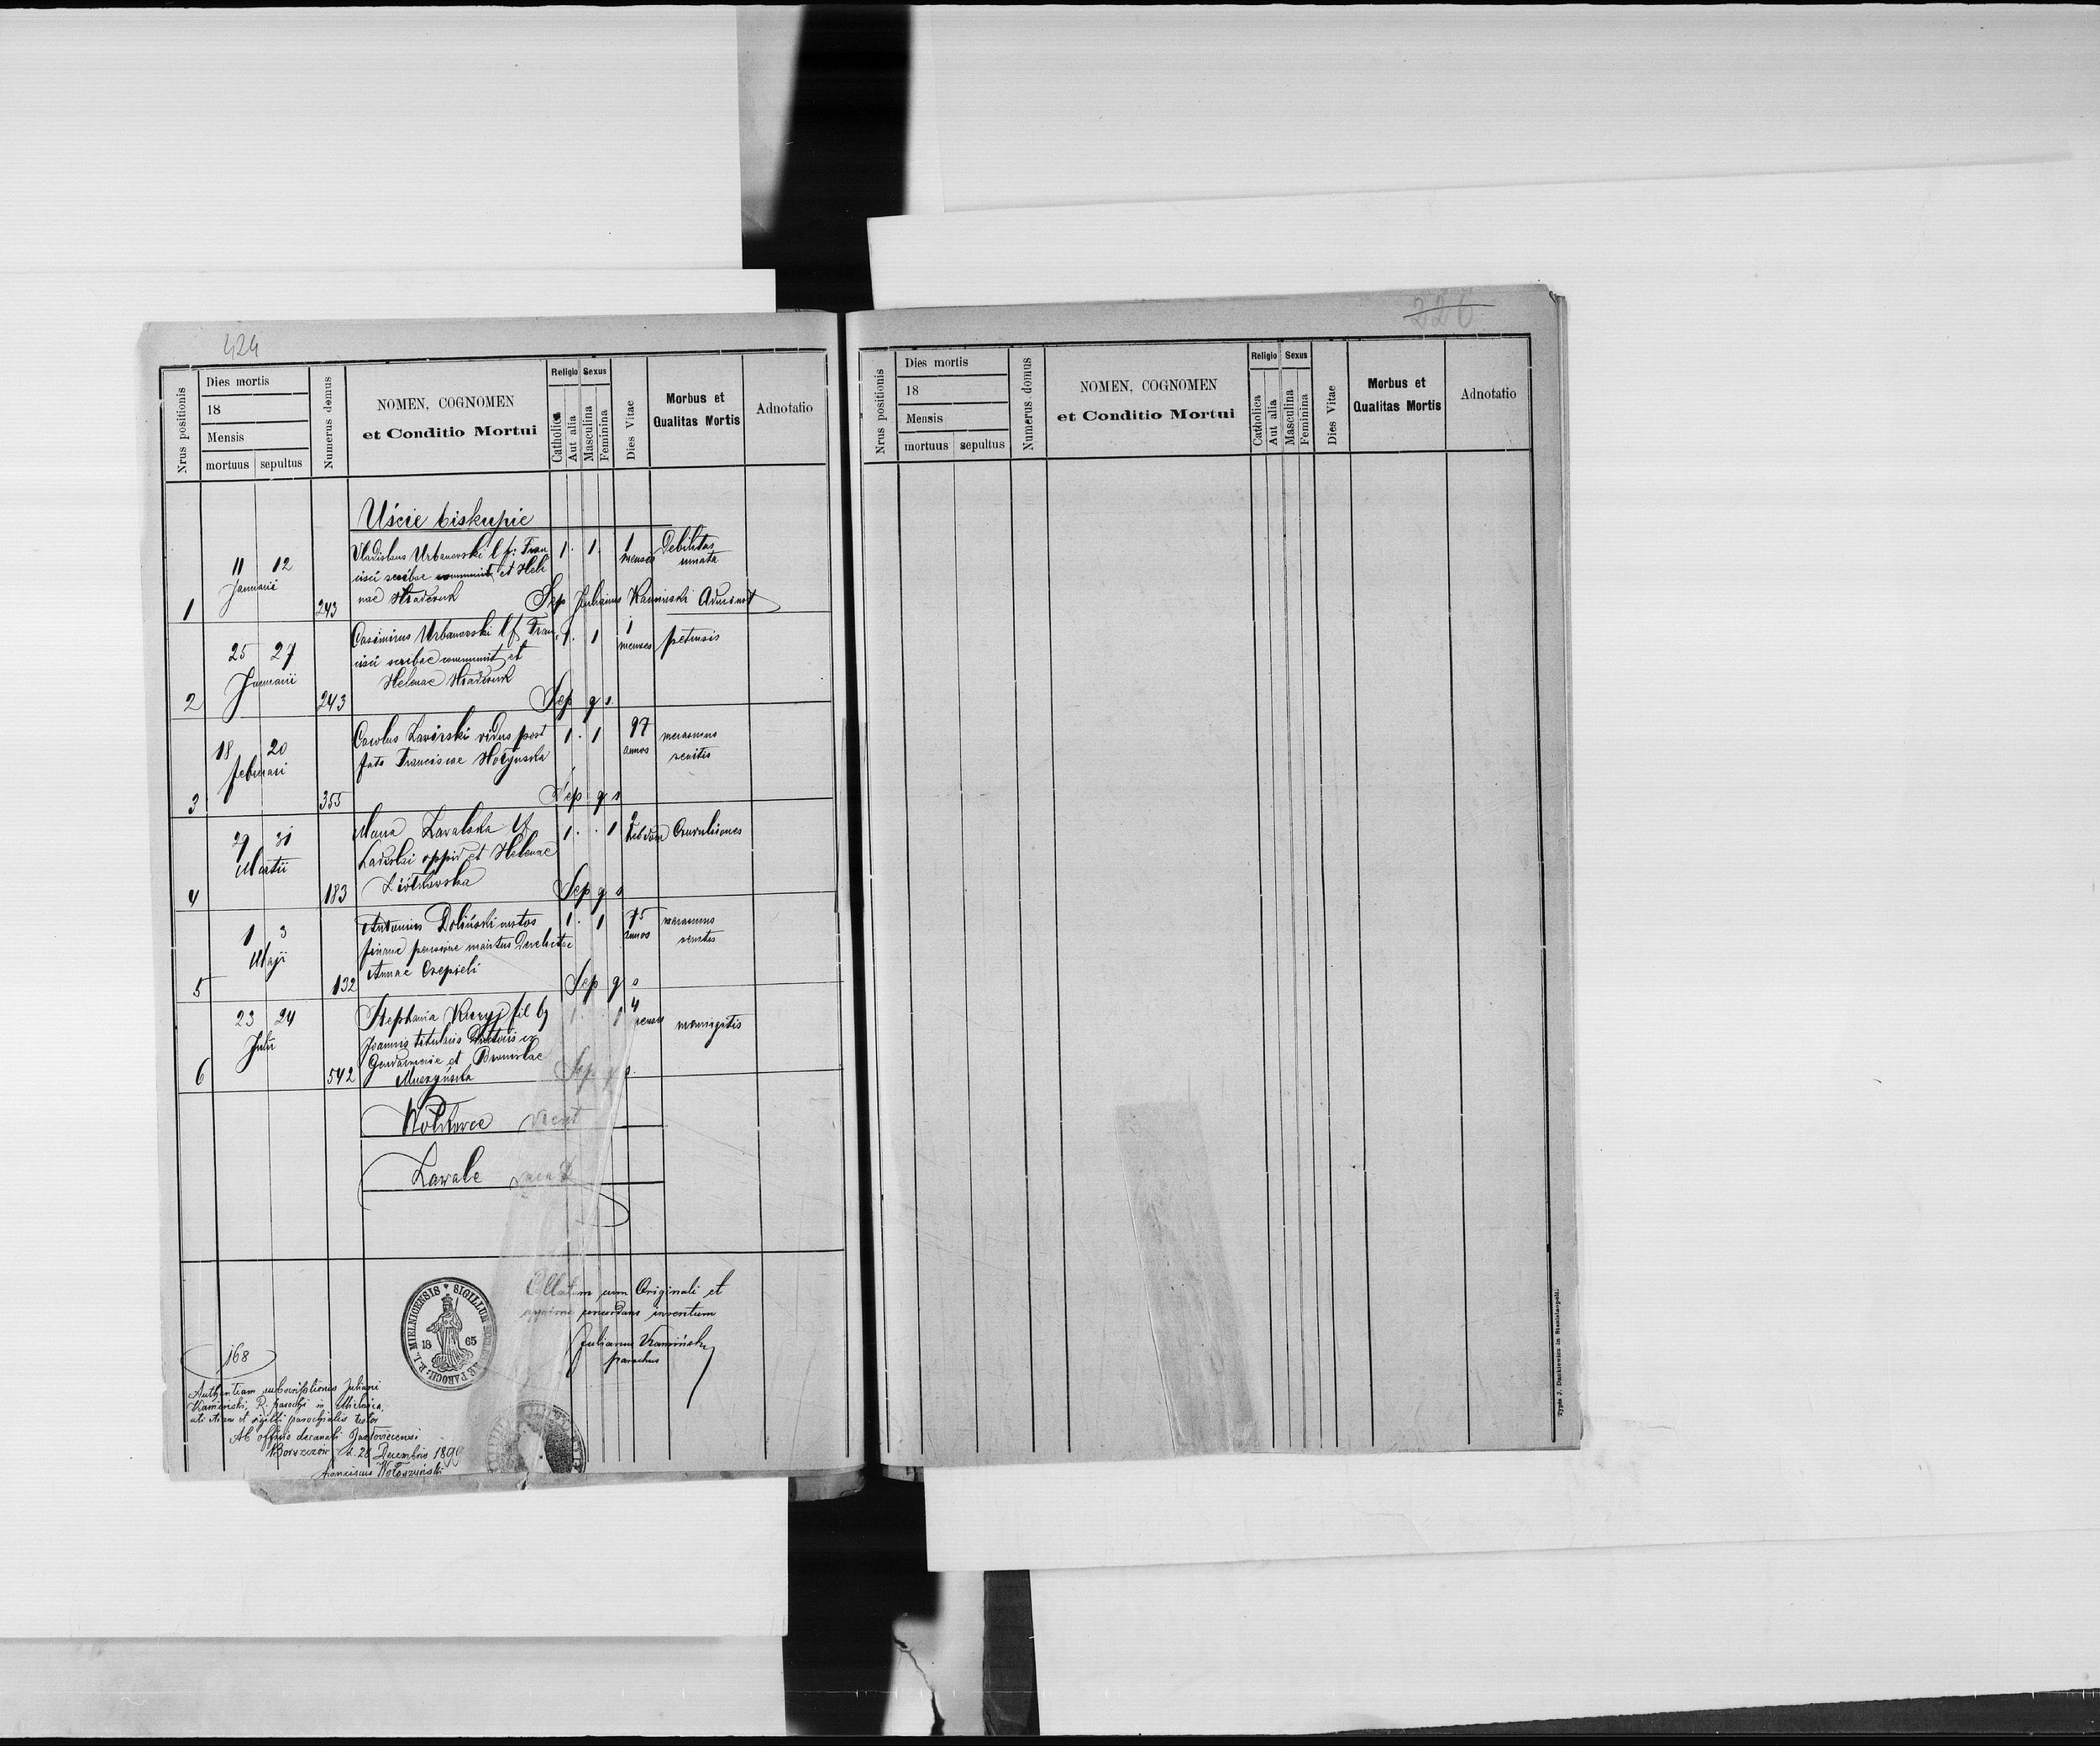 424
Nrus positionis
Dies mortis
18
Mensis
mortuus sepultus
Numerus domus
NOMEN, COGNOMEN
et Conditio Mortui
Religio Sexus
Catholica
Aut alia
Masculina
Feminina
Dies Vitae
Morbus et
Qualitas Mortis
Adnotatio
Uście biskupie
Vladislaus Urbanowski l f: Fran
cisci scribae communit et Hele
nae
1 11 12 Januarii 243 1. 1. 1 mensis Debilitas innata
Sep Julianus Kamiński
Casimirus Urbanowski l f Fran
cisci scribae communit et
Helenae
2 25 27 Januarii 243 1. 1 1 menses pertussis
Sep q s.
Carolus Zawirski vidus post
fata Franciscae
3 18 20 februari 355 1. 1 97 annos marasmus senilis
Sep q s
Maria Zawalska l f
oppid et Helenae
4 29 31 Martii 183 1. . 1 2 Convulsiones
Sep q s
Antonius Doliński custos
finane maritus
Annae
5 1 3 Maji 132 1. 1 75 annos marasmus
Sep q s
Stephania fil leg
Joannis titularis
et Bronislae
6 23 24 Julii 542 1 . 1 4 menses meningitis
Sep q s.
Wołkowce vacat
Zawale vacat
SIGILLUM PAROCH. R. L. MIELNICENSIS
18 65
Collatum cum Originali et
concordans inventum
Julianus Kamiński
parochus
168
Authentiam subscriptionis Juliani
Kamiński, R. parochi in Mielnica,
et sigilli parochialis testor
Ab officio decanali Jazłoviecensi
Borszczów d. 28 Decembris 1899
Franciscus Wołoszyński
226
Nrus positionis
Dies mortis
18
Mensis
mortuus sepultus
Numerus domus
NOMEN, COGNOMEN
et Conditio Mortui
Religio Sexus
Catholica
Aut alia
Masculina
Feminina
Dies Vitae
Morbus et
Qualitas Mortis
Adnotatio
Typis J. Dankiewicz in Stanislaopoli.